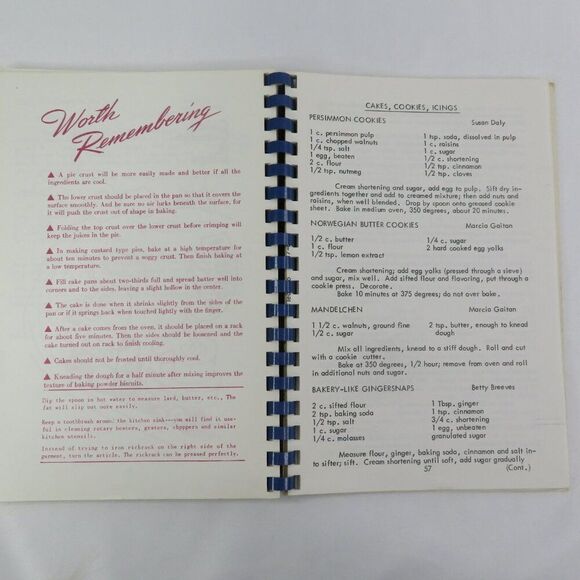 Worth
Remembering
▲ A pie crust will be more easily made and better if all the
ingredients are cool.
▲ The lower crust should be placed in the pan so that it covers the
surface smoothly. And be sure no air lurks beneath the surface, for
it will push the crust out of shape in baking.
▲ Folding the top crust over the lower crust before crimping will
keep the juices in the pie.
▲ In making custard type pies, bake at a high temperature for
about ten minutes to prevent a soggy crust. Then finish baking at
a low temperature.
▲ Fill cake pans about two-thirds full and spread batter well into
corners and to the sides, leaving a slight hollow in the center.
▲ The cake is done when it shrinks slightly from the sides of the
pan or if it springs back when touched lightly with the finger.
▲ After a cake comes from the oven, it should be placed on a rack
for about five minutes. Then the sides should be loosened and the
cake turned out on rack to finish cooling.
▲ Cakes should not be frosted until thoroughly cool.
▲ Kneading the dough for a half minute after mixing improves the
texture of baking powder biscuits.
Dip the spoon in hot water to measure lard, butter, etc., The
fat will slip out more easily.
Keep a toothbrush around the kitchen sink---you will find it use-
ful in cleaning rotary beaters, graters, choppers and similar
kitchen utensils.
Instead of trying to iron rickrack on the right side of the
garment, turn the article. The rickrack can be pressed perfectly.
CAKES, COOKIES, ICINGS
PERSIMMON COOKIES Susan Daly
1 c. persimmon pulp 1 tsp. soda, dissolved in pulp
1 c. chopped walnuts 1 c. raisins
1/4 tsp. salt 1 c. sugar
1 egg, beaten 1/2 c. shortening
2 c. flour 1/2 tsp. cinnamon
1/2 tsp. nutmeg 1/2 tsp. cloves
Cream shortening and sugar, add egg to pulp. Sift dry in-
gredients together and add to creamed mixture; then add nuts and
raisins, when well blended. Drop by spoon onto greased cookie
sheet. Bake in medium oven, 350 degrees, about 20 minutes.
NORWEGIAN BUTTER COOKIES Marcia Gaitan
1/2 c. butter 1/4 c. sugar
1 c. flour 2 hard cooked egg yolks
1/2 tsp. lemon extract
Cream shortening; add egg yolks (pressed through a sieve)
and sugar, mix well. Add sifted flour and flavoring, put through a
cookie press. Decorate.
Bake 10 minutes at 375 degrees; do not over bake.
MANDELCHEN Marcia Gaitan
1 1/2 c. walnuts, ground fine 2 tsp. butter, enough to knead
1/2 c. sugar dough
Mix all ingredients, knead to a stiff dough. Roll and cut
with a cookie cutter.
Bake at 350 degrees, 1/2 hour; remove from oven and roll
in additional nuts and sugar.
BAKERY-LIKE GINGERSNAPS Betty Breeves
2 c. sifted flour 1 Tbsp. ginger
2 tsp. baking soda 1 tsp. cinnamon
1/2 tsp. salt 3/4 c. shortening
1 c. sugar 1 egg, unbeaten
1/4 c. molasses granulated sugar
Measure flour, ginger, baking soda, cinnamon and salt in-
to sifter; sift. Cream shortening until soft, add sugar gradually
57 (Cont.)